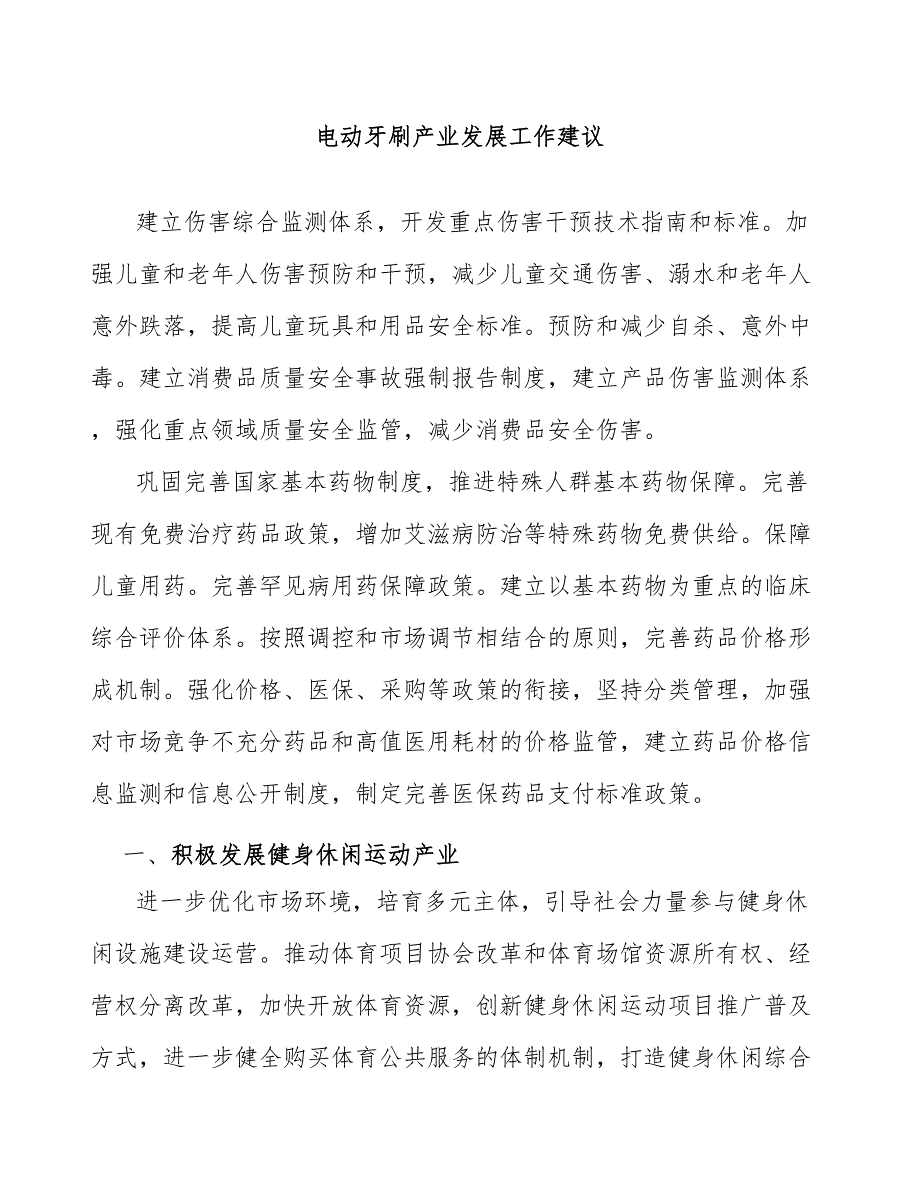 电动牙刷产业发展工作建议
建立伤害综合监测体系，开发重点伤害干预技术指南和标准。加
强儿童和老年人伤害预防和干预，减少儿童交通伤害、溺水和老年人
意外跌落，提高儿童玩具和用品安全标准。预防和减少自杀、意外中
毒。建立消费品质量安全事故强制报告制度，建立产品伤害监测体系
，强化重点领域质量安全监管，减少消费品安全伤害。
巩固完善国家基本药物制度，推进特殊人群基本药物保障。完善
现有免费治疗药品政策，增加艾滋病防治等特殊药物免费供给。保障
儿童用药。完善罕见病用药保障政策。建立以基本药物为重点的临床
综合评价体系。按照调控和市场调节相结合的原则，完善药品价格形
成机制。强化价格、医保、采购等政策的衔接，坚持分类管理，加强
对市场竞争不充分药品和高值医用耗材的价格监管，建立药品价格信
息监测和信息公开制度，制定完善医保药品支付标准政策。
一、积极发展健身休闲运动产业
进一步优化市场环境，培育多元主体，引导社会力量参与健身休
闲设施建设运营。推动体育项目协会改革和体育场馆资源所有权、经
营权分离改革，加快开放体育资源，创新健身休闲运动项目推广普及
方式，进一步健全购买体育公共服务的体制机制，打造健身休闲综合